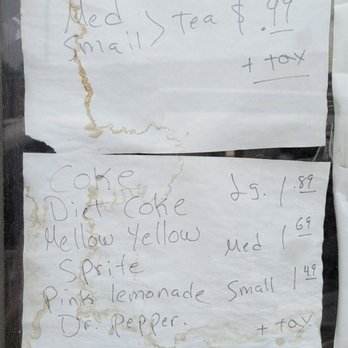 Med
Small > tea $ .99
+ tax
Coke
Diet Coke
Mellow Yellow
Sprite
Pink lemonade
Dr. Pepper.
Lg. 1.89
Med 1.69
Small 1.49
+ tax